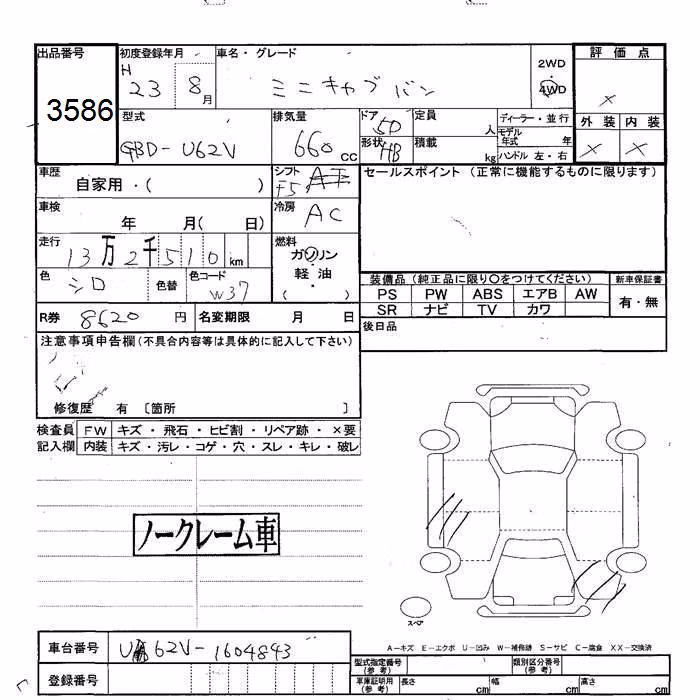 出品番号 初度登録年月 車名・グレード 評価点
3586 H 23 8月 ミニキャブバン 2WD 4WD ×
型式 排気量 ドア 定員 ディーラー・並行 外装 内装
GBD-U62V 660 CC 5D 人 モデル年式 年
形状 HB 積載 kg ハンドル 左・右 × ×
車歴 自家用・( ) シフト F5 AT セールスポイント (正常に機能するものに限ります)
車検 年 月( 日) 冷房 AC
走行 13万2千510km 燃料 ガソリン
色 シロ 色替 色コード W37 軽油 ( )
装備品 (純正品に限り○をつけてください) 新車保証書
PS PW ABS エアB AW 有・無
SR ナビ TV カワ
R券 8620円 名変期限 月 日 後日品
注意事項申告欄(不具合内容等は具体的に記入して下さい)
修復歴 有 〔箇所 〕
検査員 FW キズ・飛石・ヒビ割・リペア跡・×要
記入欄 内装 キズ・汚レ・コゲ・穴・スレ・キレ・破レ
ノークレーム車
スペア
A-キズ E-エクボ U-凹み W-補修跡 S-サビ C-腐食 XX-交換済
車台番号 U62V-1604843
型式指定番号(参考) 類別区分番号(参考)
登録番号 車庫証明用(参考) 長さ cm 幅 cm 高さ cm